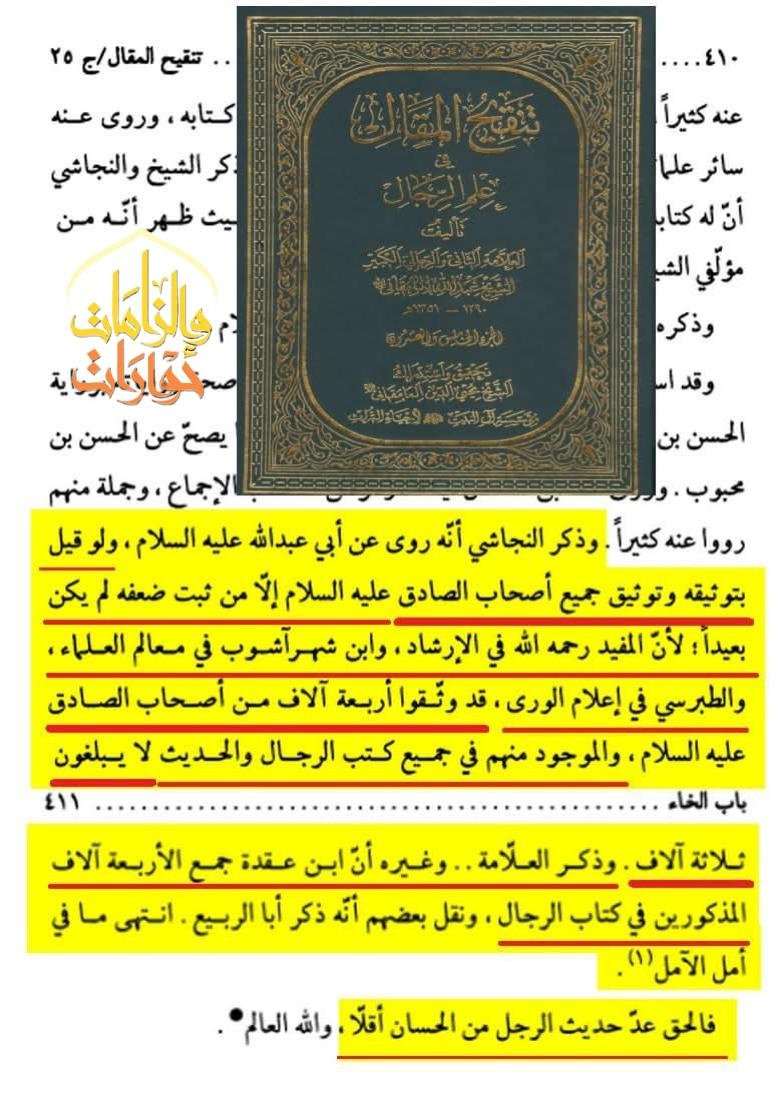 ٤١٠ .... .. تنقيح المقال/ج ٢٥
عنه كثيراً كتابه ، وروى عنه
سائر علما ذكر الشيخ والنجاشي
أنّ له كتاب يث ظهر أنّه من
مؤلّفي الشي
وذكره م
وقد اس رواية
الحسن بن ا يصحّ عن الحسن بن
محبوب . الإجماع ، وجملة منهم
رووا عنه كثيراً . وذكر النجاشي أنّه روى عن أبي عبدالله عليه السلام ، ولو قيل
بتوثيقه وتوثيق جميع أصحاب الصادق عليه السلام إلّا من ثبت ضعفه لم يكن
بعيداً ؛ لأنّ المفيد رحمه الله في الإرشاد ، وابن شهرآشوب في معالم العلماء ،
والطبرسي في إعلام الورى ، قد وثّقوا أربعة آلاف من أصحاب الصادق
عليه السلام ، والموجود منهم في جميع كتب الرجال والحديث لا يبلغون
باب الخاء .................................................. ٤١١
ثلاثة آلاف . وذكر العلّامة .. وغيره أنّ ابن عقدة جمع الأربعة آلاف
المذكورين في كتاب الرجال ، ونقل بعضهم أنّه ذكر أبا الربيع . انتهى ما في
أمل الآمل(١) .
فالحق عدّ حديث الرجل من الحسان أقلّا ، والله العالم● .
تنقيح المقال
في
علم الرجال
تأليف
العلامة الثاني والرجالي الكبير
الشيخ عبدالله المامقاني
١٢٩٠ - ١٣٥١هـ
الجزء الخامس والعشرون
تحقيق واستدراك
الشيخ محيي الدين المامقاني
مؤسسة آل البيت لإحياء التراث
والزامات
حوارات